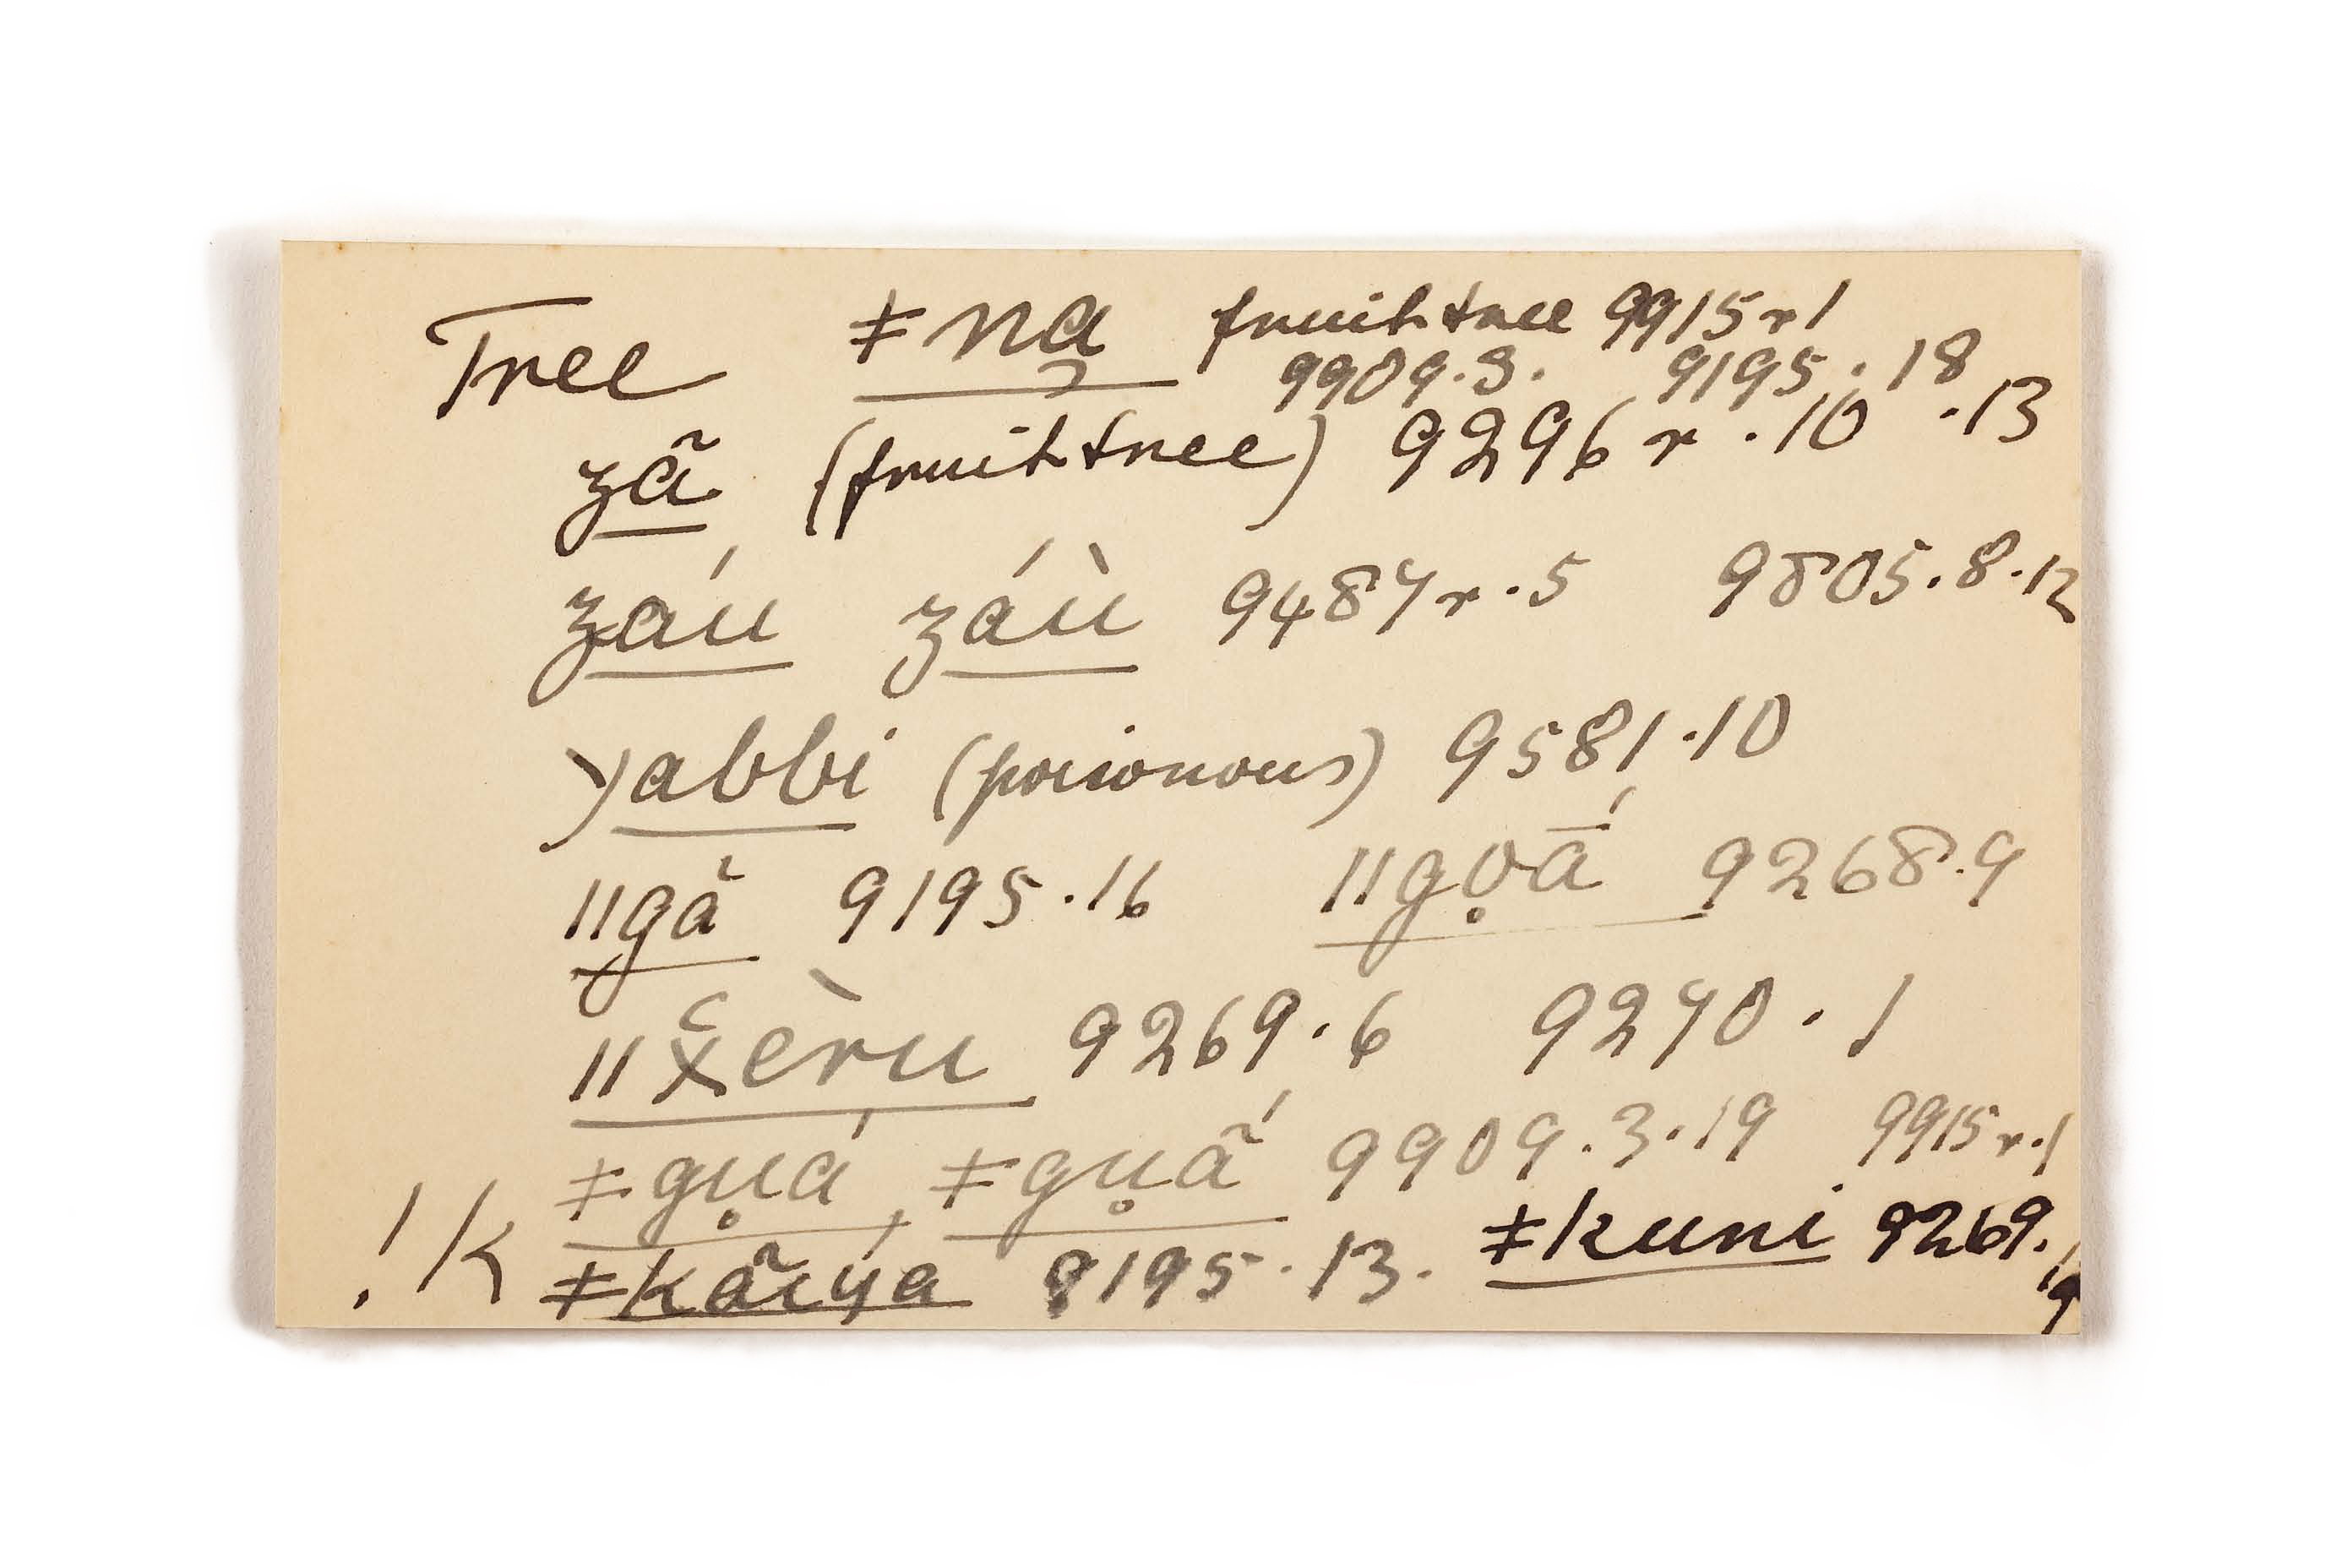 Tree ǂna̡ fruit tree 9915 r 1
9909.3. 9195.18
zã (fruit tree) 9296 r .10 .13
záu záù 9487 r .5 9805.8.12
yabbi (poisonous) 9581.10
ǁgǎ 9195.16 ǁgo̥ā́ 9268.9
ǁx̆èru 9269.6 9270.1
ǂgu̥á, ǂgu̥ã́ 9909.3.19 9915 r.1
!k ǂkãıya 9195.13. ǂkuni 9269.19